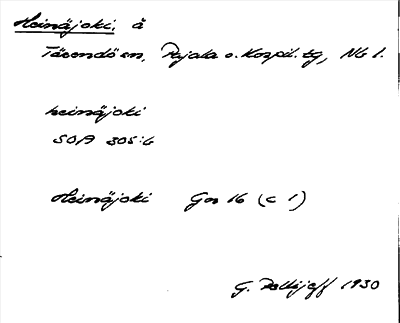 Heinäjoki, å
Tärendö sn, Pajala o. Korpil. tg, Nb l.
heinäjoki
SOA 305:6
Heinäjoki Gen 16 (c 1)
G. Pellijeff 1930